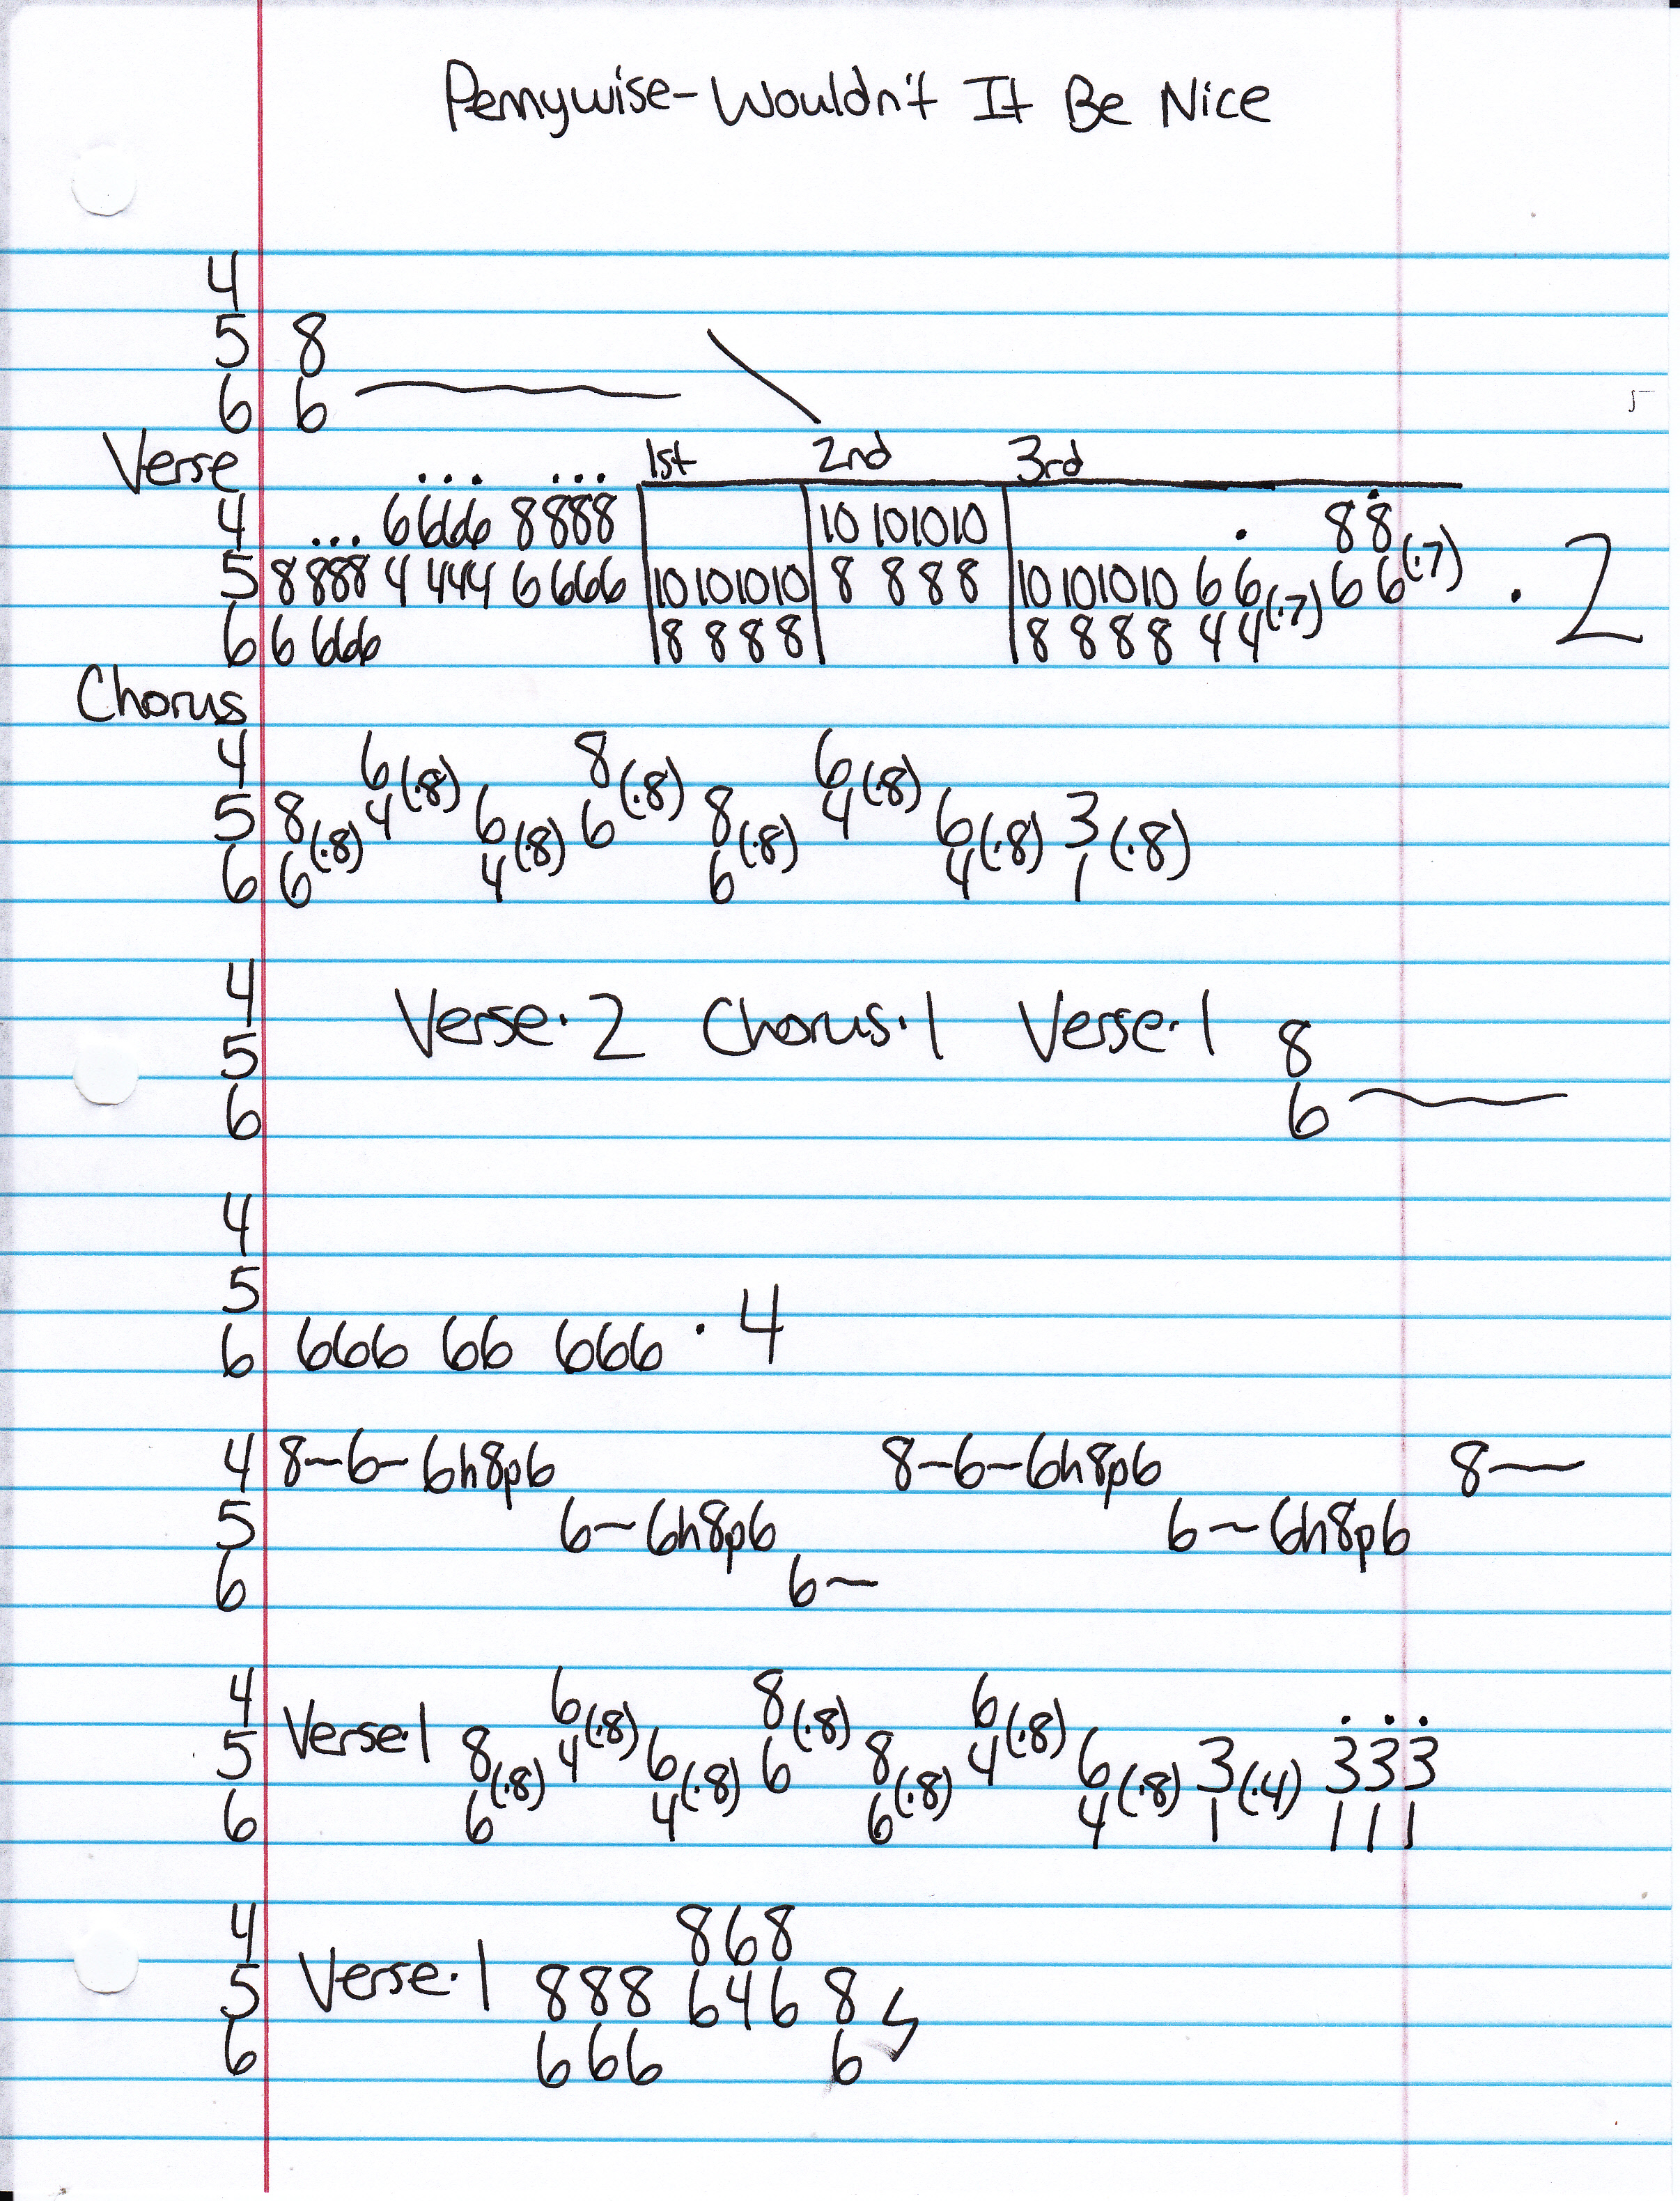 Pennywise-Wouldn't It Be Nice
4
5 8
6 6
Verse 1st 2nd 3rd
4 6666 8888 10 101010 88
5 8888 4 444 6 666 10101010 8 8 8 8 10101010 6 6(·7) 6 6(·7) · 2
6 6 666 8 8 8 8 8 8 8 8 4 4
Chorus
4 6(·8) 8(·8) 6(·8)
5 8(·8) 4 6(·8) 6 8(·8) 4 6(·8) 3(·8)
6 6 4 6 4 1
4
5 Verse·2 Chorus·1 Verse·1 8
6 6
4
5
6 666 66 666 · 4
4 8~6-6h8p6 8-6-6h8p6 8~
5 6~6h8p6 6~6h8p6
6 6~
4 6(·8) 8(·8) 6(·8)
5 Verse·1 8(·8) 4 6(·8) 6 8(·8) 4 6(·8) 3(·4) 333
6 6 4 6 4 1 111
4 868
5 Verse·1 888 646 8
6 666 6